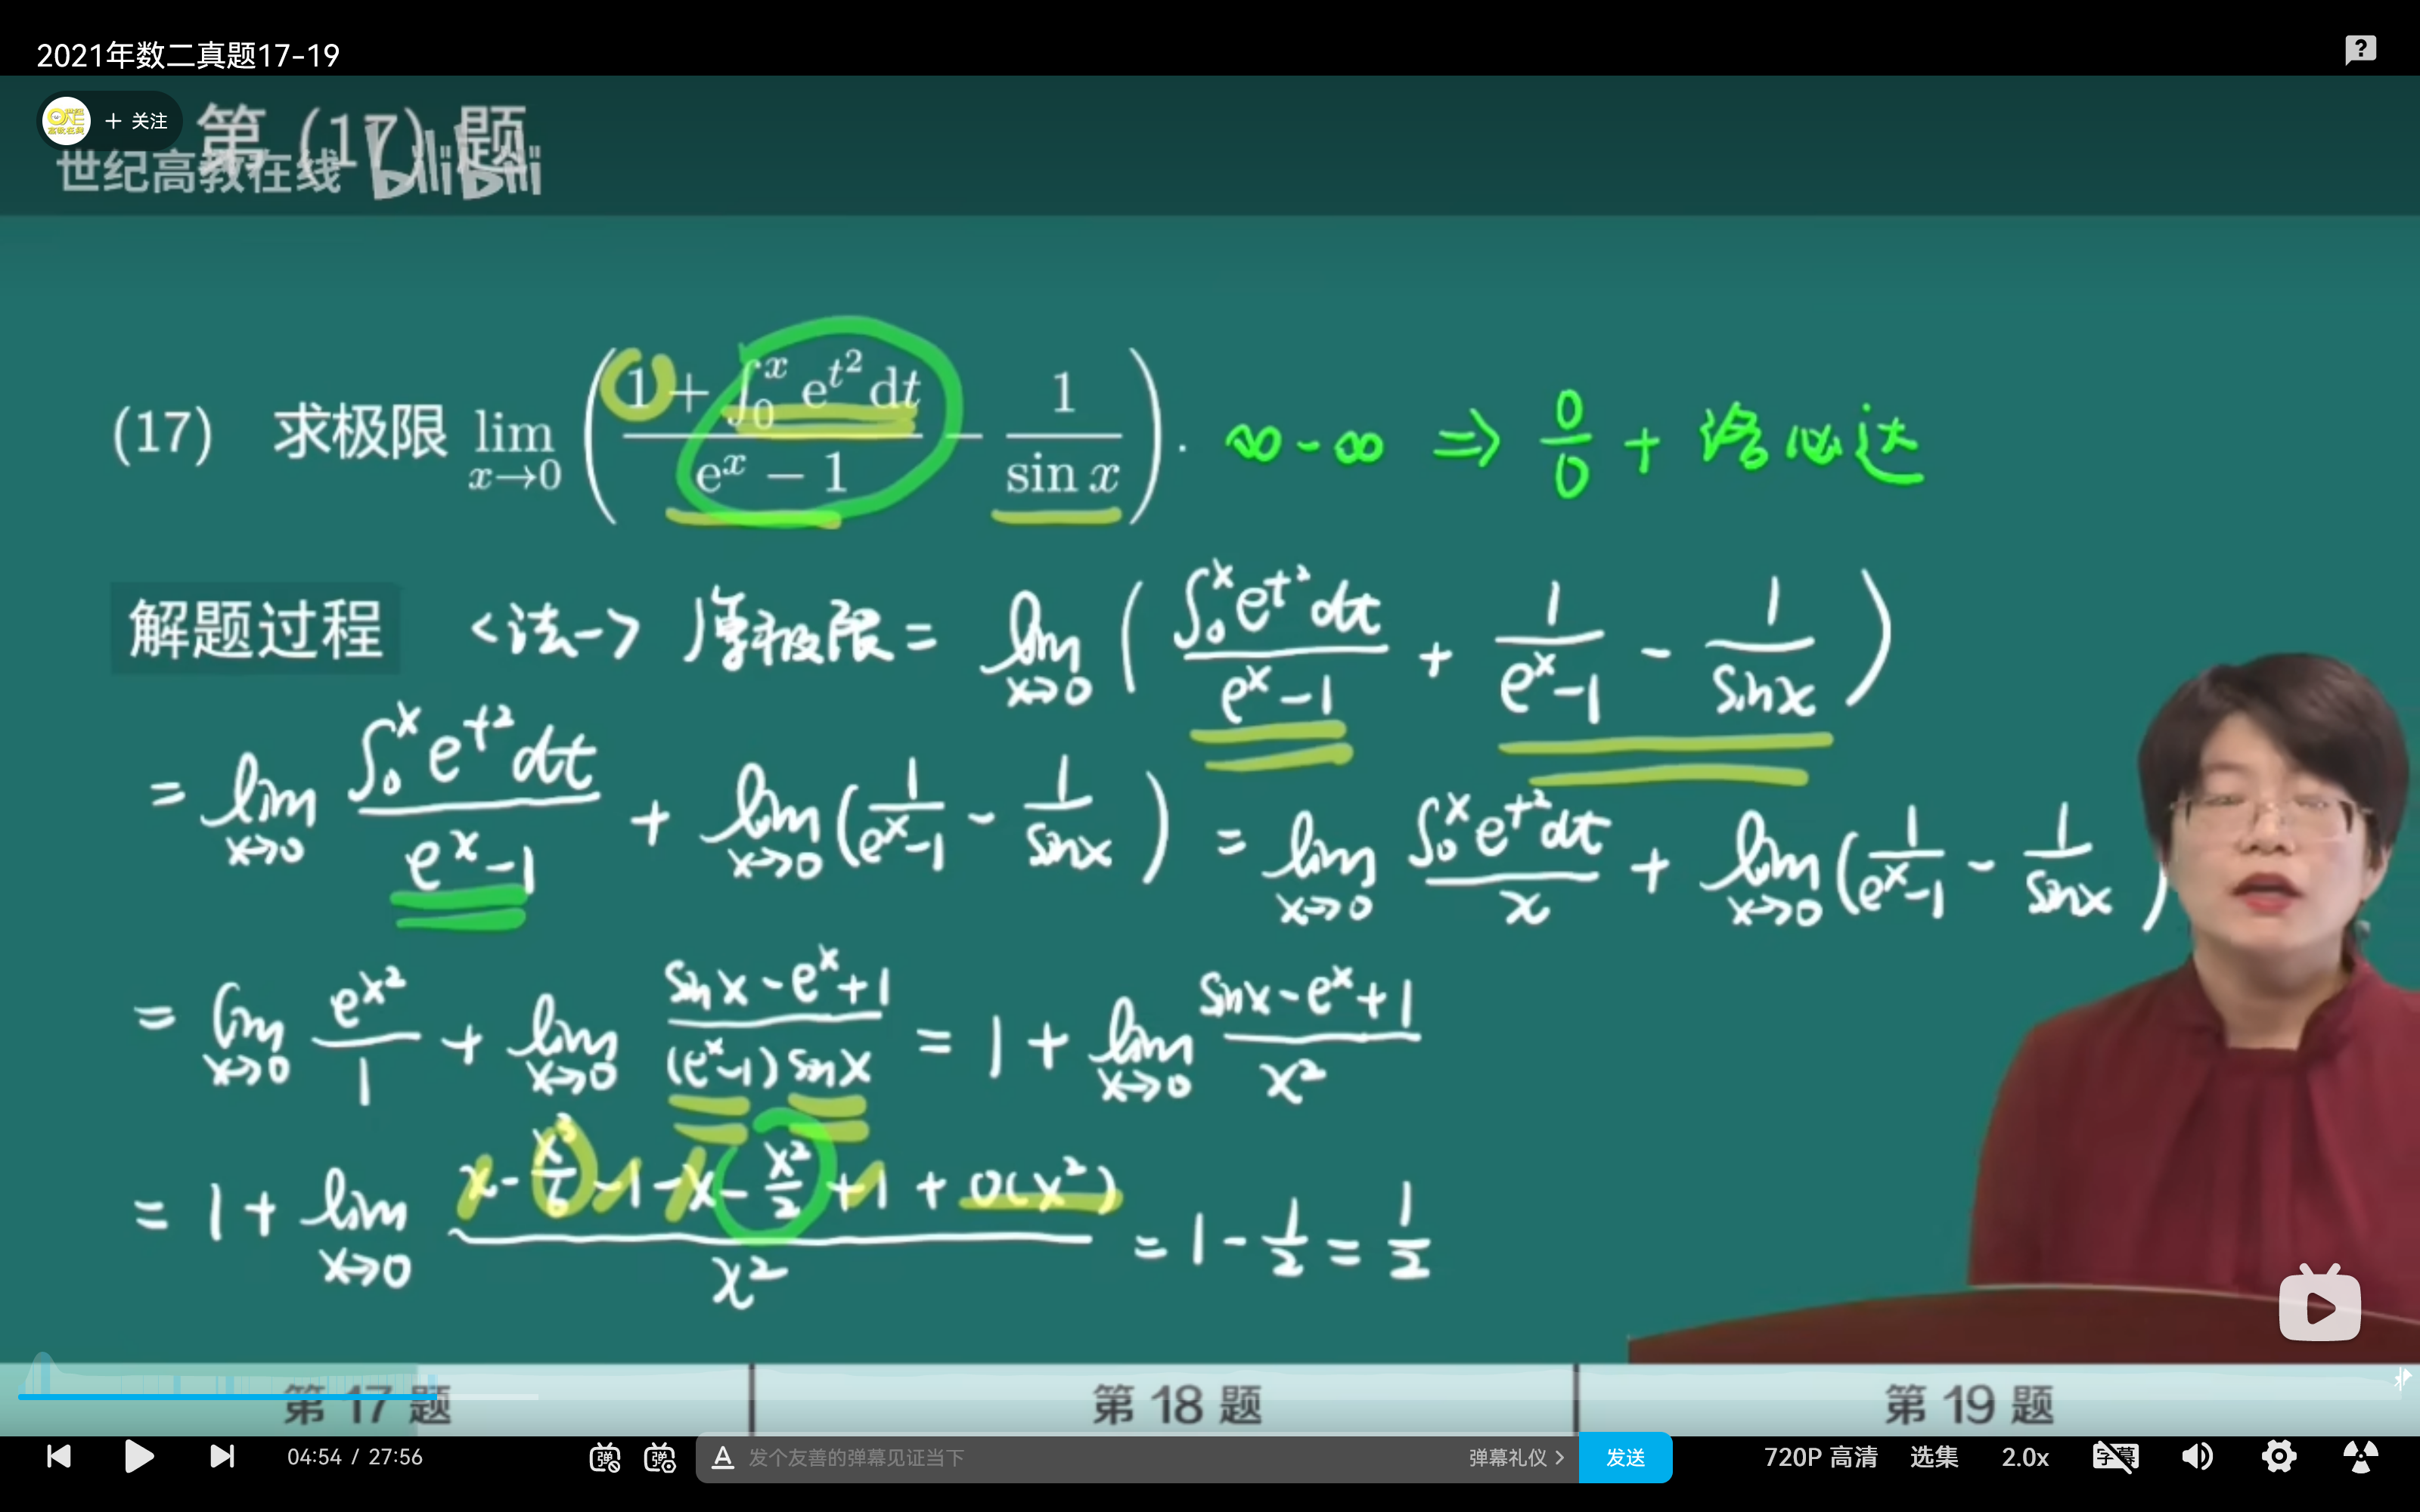 2021年数二真题17-19
+ 关注
第 (17) 题
世纪高教在线 bilibili
(17) 求极限 lim x→0 ( (1 + ∫₀ˣ e^{t²} dt) / (eˣ − 1) − 1 / sin x ) . ∞ - ∞ ⇒ 0/0 + 洛必达
解题过程 <法一> 原极限 = lim x→0 ( ∫₀ˣ e^{t²} dt / (eˣ-1) + 1/(eˣ-1) - 1/sinx )
= lim x→0 ∫₀ˣ e^{t²} dt / (eˣ-1) + lim x→0 ( 1/(eˣ-1) - 1/sinx ) = lim x→0 ∫₀ˣ e^{t²} dt / x + lim x→0 ( 1/(eˣ-1) - 1/sinx )
= lim x→0 e^{x²} / 1 + lim x→0 (sinx - eˣ + 1) / ((eˣ-1) sinx) = 1 + lim x→0 (sinx - eˣ + 1) / x²
= 1 + lim x→0 (x - x³/6 - 1 - x - x²/2 + 1 + o(x²)) / x² = 1 - 1/2 = 1/2
第 17 题 第 18 题 第 19 题
04:54 / 27:56 弹 弹 A 发个友善的弹幕见证当下 弹幕礼仪 > 发送 720P 高清 选集 2.0x 字幕